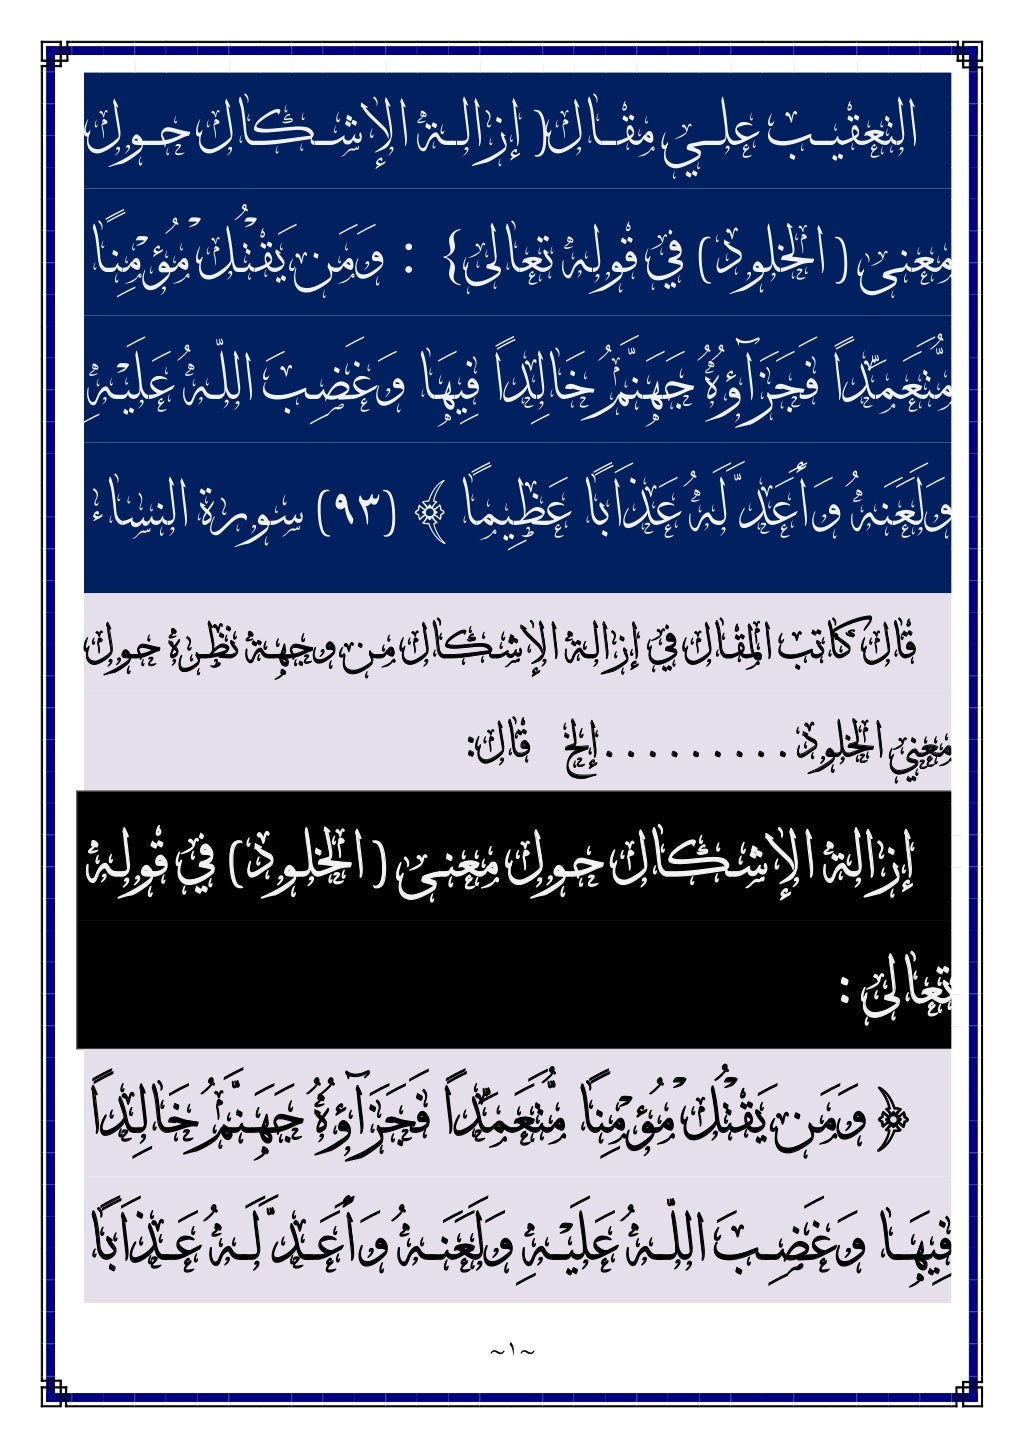 التعقيب علي مقال( إزالة الإشكال حول
معنى ( الخلود) في قوله تعالى} : وَمَن يَقْتُلْ مُؤْمِنًا
مُّتَعَمِّداً فَجَزَآؤُهُ جَهَنَّمُ خَالِداً فِيهَا وَغَضِبَ اللّهُ عَلَيْهِ
وَلَعَنَهُ وَأَعَدَّ لَهُ عَذَابًا عَظِيمًا ﴾ (٩٣) سورة النساء
قال كاتب المقال في إزالة الإشكال من وجهة نظره حول
معني الخلود.........إلخ قال:
إزالة الإشكال حول معنى ( الخلود) في قوله
تعالى :
﴿ وَمَن يَقْتُلْ مُؤْمِنًا مُّتَعَمِّداً فَجَزَآؤُهُ جَهَنَّمُ خَالِداً
فِيهَا وَغَضِبَ اللّهُ عَلَيْهِ وَلَعَنَهُ وَأَعَدَّ لَهُ عَذَابًا
~١~